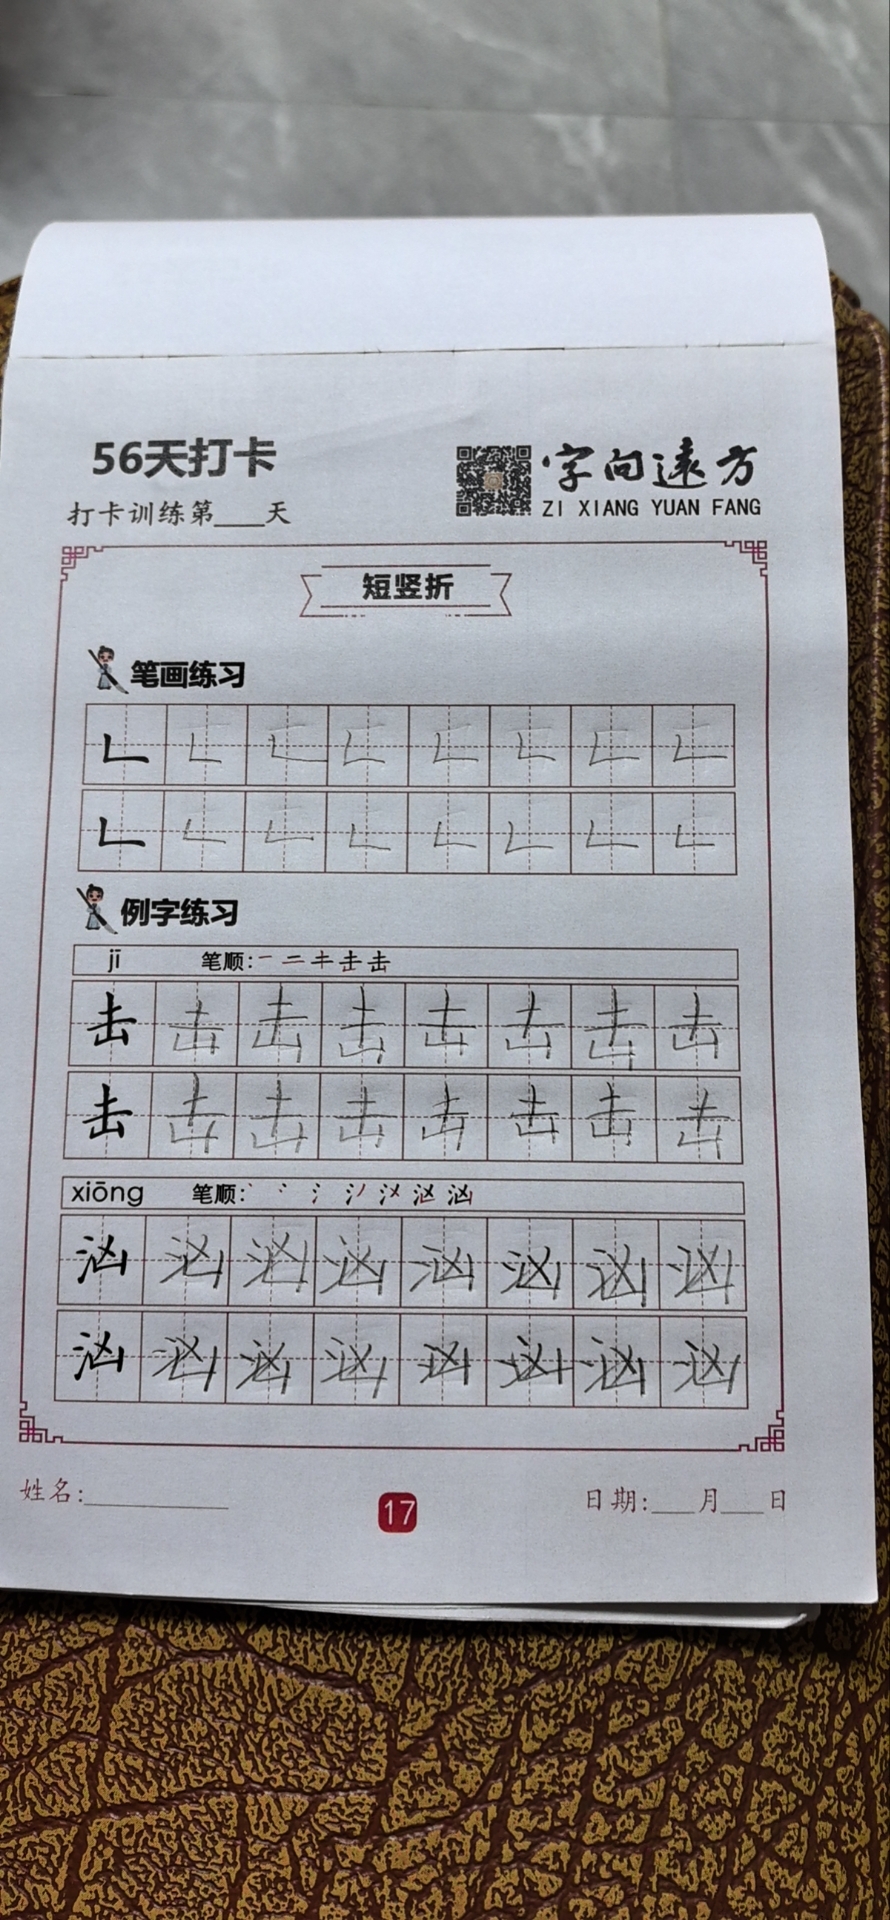 56天打卡
字向远方
打卡训练第___天
ZI XIANG YUAN FANG
短竖折
笔画练习
𠃊 𠃊 𠃊 𠃊 𠃊 𠃊 𠃊 𠃊
𠃊 𠃊 𠃊 𠃊 𠃊 𠃊 𠃊 𠃊
例字练习
jī 笔顺:一 二 キ 击 击
击 击 击 击 击 击 击 击
击 击 击 击 击 击 击 击
xiōng 笔顺:丶 冫 氵 汹 汹
汹 汹 汹 汹 汹 汹 汹 汹
汹 汹 汹 汹 汹 汹 汹 汹
姓名:__________
17
日期:___月___日